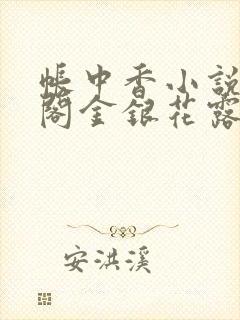 帳中香小說
閣金銀花露
安洪溪